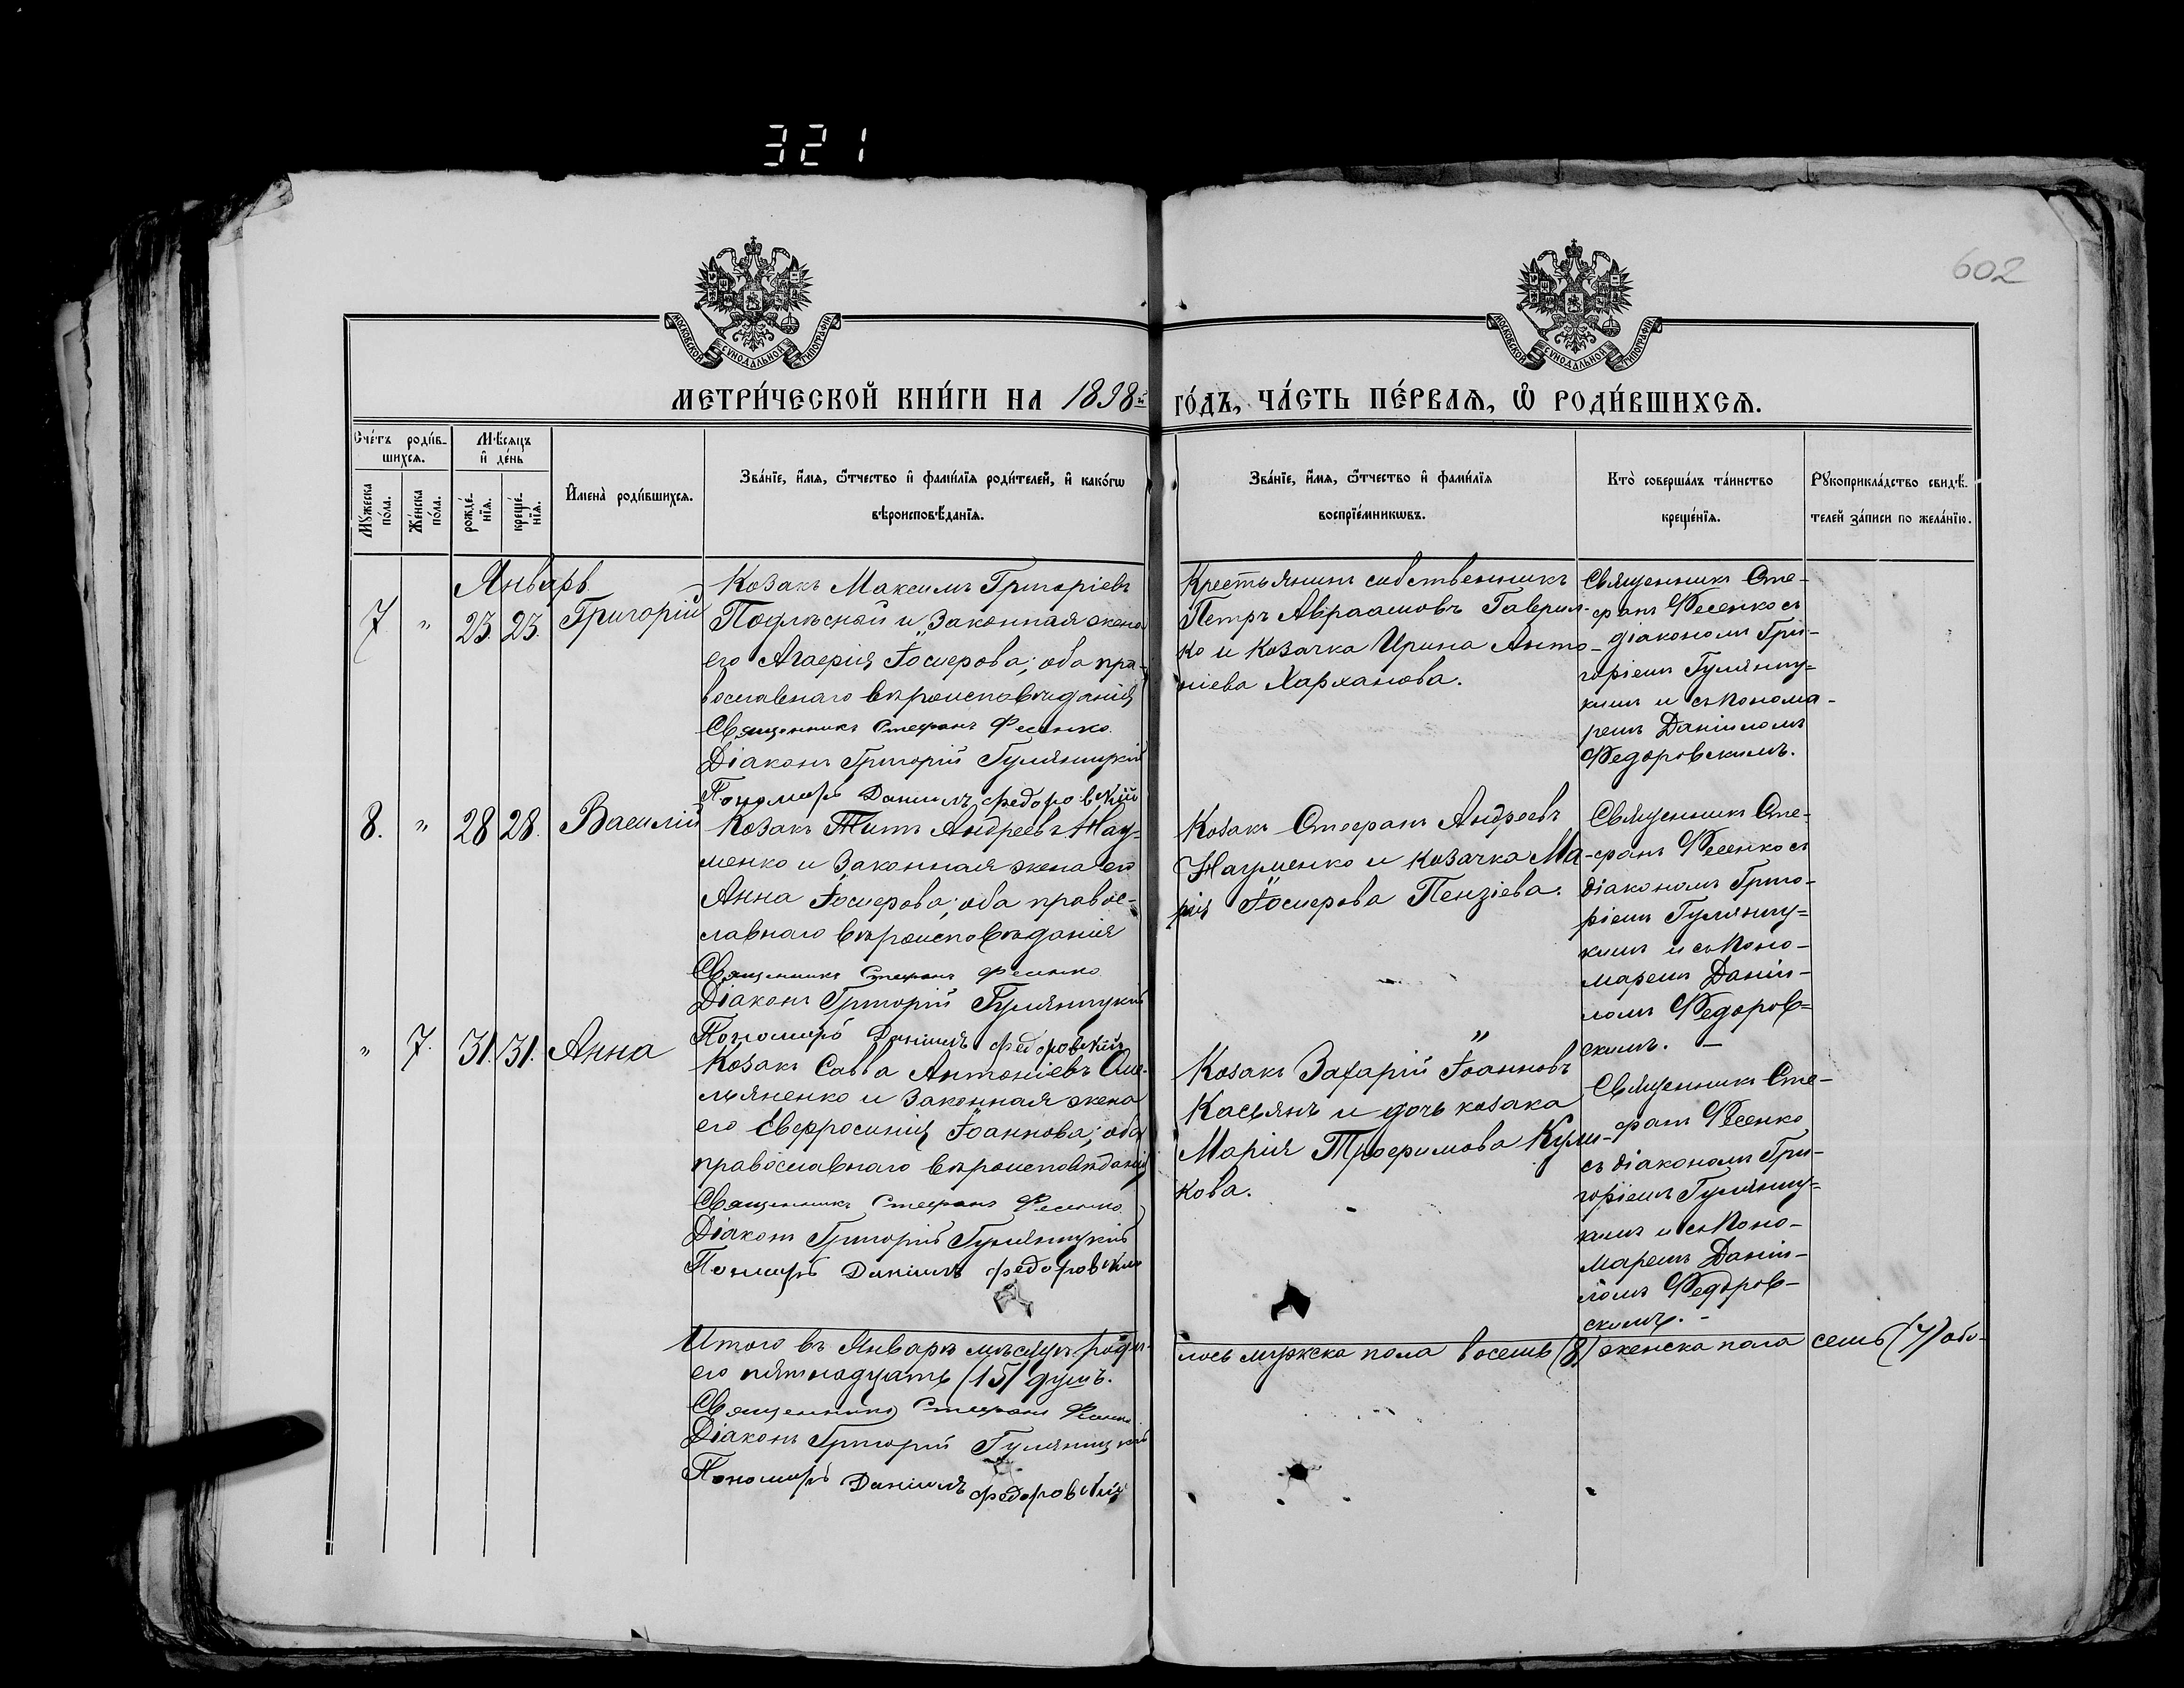 321
602
МОСКОВСКОЙ СѴНОДАЛЬНОЙ ТИПОГРАФІИ
МОСКОВСКОЙ СѴНОДАЛЬНОЙ ТИПОГРАФІИ
МЕТРИ́ЧЕСКОЙ КНИ́ГИ НА 1898й
ГО́ДЪ, ЧА́СТЬ ПЕ́РВАѦ, Ѡ РОДИ́ВШИХСѦ.
Сче́тъ роди́в-
шихсѧ.
Мꙋ́жеска
по́ла.
Же́нска
по́ла.
Мѣ́сѧцъ
и҆ де́нь
рожде́-
нїѧ.
креще́-
нїѧ.
И҆мена̀ роди́вшихсѧ.
Зва́нїе, и҆́мѧ, ѻ҆́тчество и҆ фами́лїѧ роди́телей, и҆ како́гѡ
вѣроисповѣ́данїѧ.
Зва́нїе, и҆́мѧ, ѻ҆́тчество и҆ фами́лїѧ
воспрїе́мникѡвъ.
Кто̀ соверша́лъ та́инство
креще́нїѧ.
Рꙋкоприкла́дство свидѣ́-
телей за́писи по жела́нїю.
Январь
7 " 23. 23. Григорій
Козакъ Максимъ Григоріевъ
Подлѣсной и законная жена
его Агаѳія Іосифова; оба пра-
вославнаго вѣроисповѣданія
Священникъ Стефанъ Фесенко
Діаконъ Григорій Гуляницкій
Пономарь Даніилъ Федоровскій
Крестьянинъ собственникъ
Петръ Авраамовъ Гаврил-
ко и козачка Ирина Анто-
ніева Харханова.
Священникъ Сте-
фанъ Фесенко съ
діакономъ Гри-
горіемъ Гуляниц-
кимъ и съ понома-
ремъ Даніиломъ
Федоровскимъ.
8. " 28 28. Василій
Козакъ Титъ Андреевъ Нау-
менко и законная жена его
Анна Іосифова; оба правос-
лавнаго вѣроисповѣданія
Священникъ Стефанъ Фесенко
Діаконъ Григорій Гуляницкій
Пономарь Даніилъ Федоровскій
Козакъ Стефанъ Андреевъ
Науменко и козачка Ма-
рія Іосифова Пензіева.
Священникъ Сте-
фанъ Фесенко съ
діакономъ Григо-
ріемъ Гуляниц-
кимъ и съ поно-
маремъ Даніи-
ломъ Федоров-
скимъ.
" 7. 31. 31. Анна
Козакъ Савва Антоніевъ Оме-
льяненко и законная жена
его Евфросинія Іоаннова; оба
православнаго вѣроисповѣданія
Священникъ Стефанъ Фесенко
Діаконъ Григорій Гуляницкій
Пономарь Даніилъ Федоровскій
Козакъ Захарій Іоанновъ
Касьянъ и дочь козака
Марія Трофимова Кули-
кова.
Священникъ Сте-
фанъ Фесенко
съ діакономъ Гри-
горіемъ Гуляниц-
кимъ и съ поно-
маремъ Даніи-
ломъ Федоров-
скимъ.
Итого въ Январѣ мѣсяцѣ роди-
лось мужска пола восемь (8) женска пола семь (7) обо-
его пятнадцать (15) душъ.
Священникъ Стефанъ Фесенко
Діаконъ Григорій Гуляницкій
Пономарь Даніилъ Федоровскій